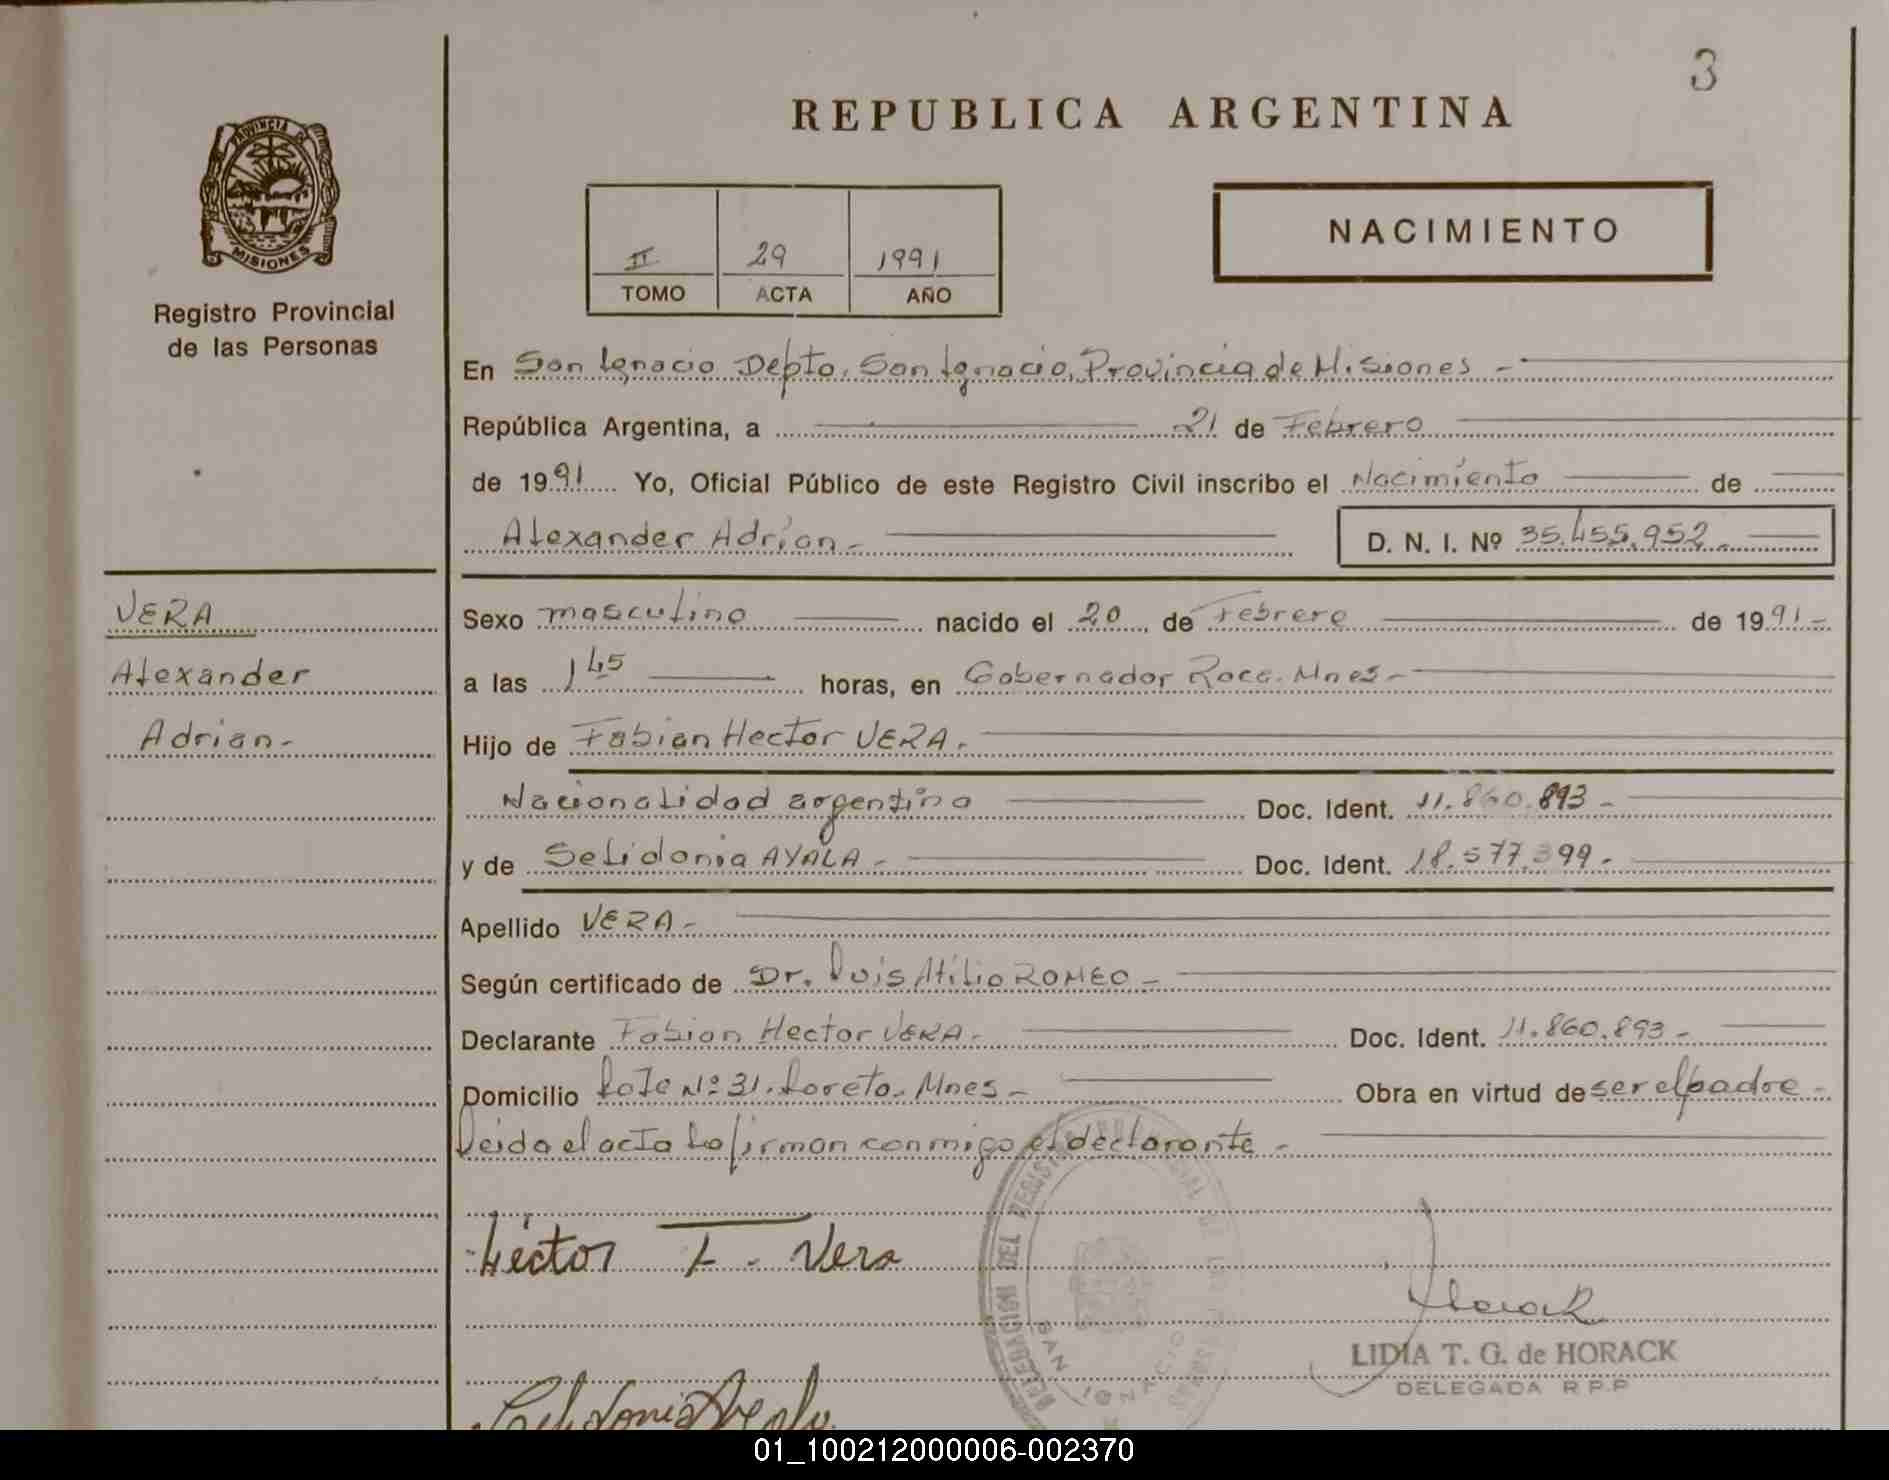 3
REPUBLICA ARGENTINA
PROVINCIA
MISIONES
Registro Provincial
de las Personas
NACIMIENTO
II 29 1991
TOMO ACTA AÑO
En San Ignacio Depto. San Ignacio, Provincia de Misiones -
República Argentina, a 21 de Febrero
de 1991 Yo, Oficial Público de este Registro Civil inscribo el Nacimiento de
Alexander Adrian - D. N. I. Nº 35.455.952 -
VERA
Alexander
Adrian -
Sexo masculino nacido el 20 de Febrero de 1991 -
a las 1 45 horas, en Gobernador Roca. Mnes -
Hijo de Fabian Hector VERA -
Nacionalidad argentina Doc. Ident. 11.860.893 -
y de Selidonia AYALA - Doc. Ident. 18.577.399 -
Apellido VERA -
Según certificado de Dr. Luis Atilio ROMEO -
Declarante Fabian Hector VERA - Doc. Ident. 11.860.893 -
Domicilio Lote Nº 31. Loreto. Mnes - Obra en virtud de ser el padre -
Leida el acta la firman conmigo el declarante -
Héctor F. Vera
DELEGACION DEL REGISTRO PROVINCIAL DE LAS PERSONAS
SAN IGNACIO
Horack
LIDIA T. G. de HORACK
DELEGADA R P.P
01_100212000006-002370